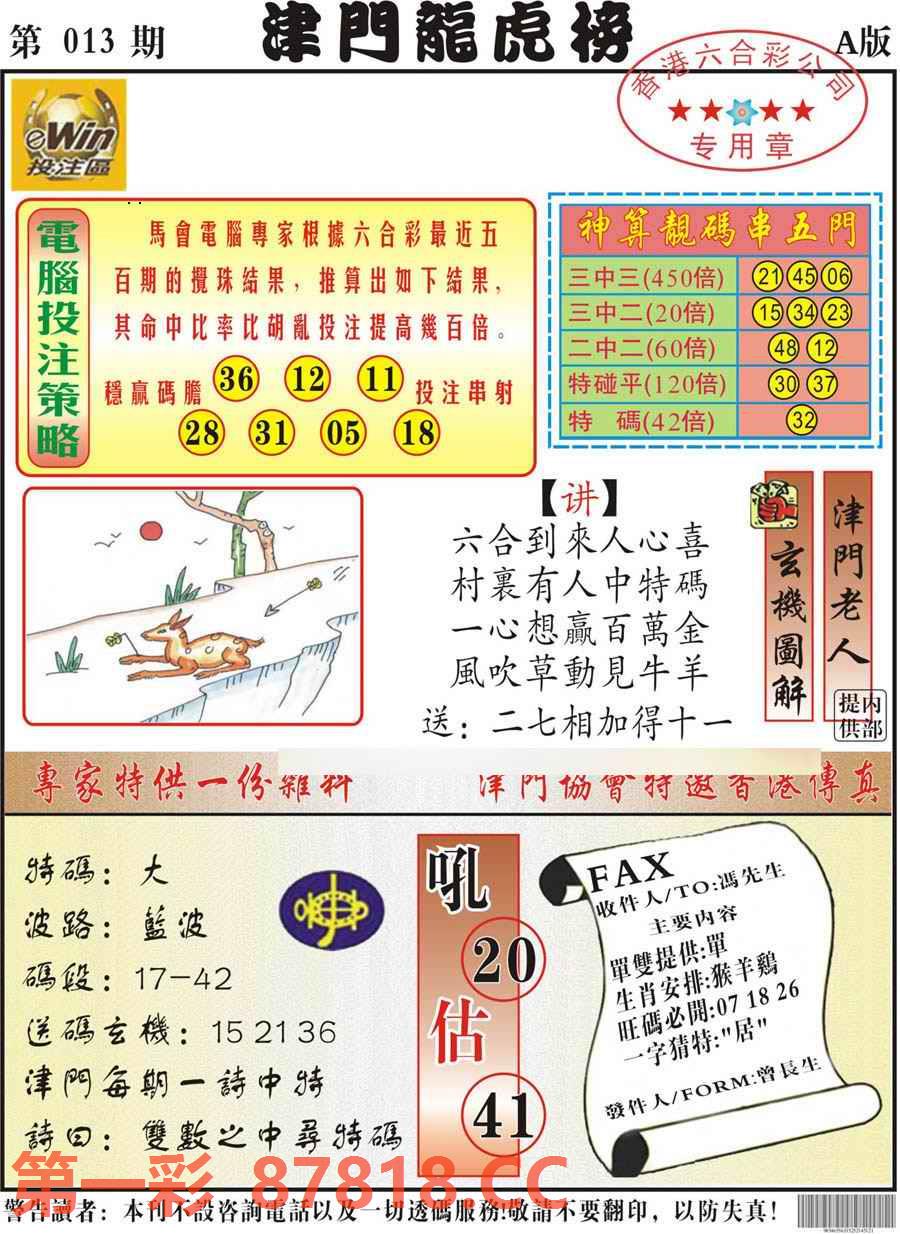 第 013 期
津門龍虎榜
A版
香港六合彩公司
专用章
eWin
投注區
電腦投注策略
馬會電腦專家根據六合彩最近五
百期的攪珠結果，推算出如下結果，
其命中比率比胡亂投注提高幾百倍。
穩贏碼膽 36 12 11 投注串射
28 31 05 18
神算靚碼串五門
三中三(450倍) 21 45 06
三中二(20倍) 15 34 23
二中二(60倍) 48 12
特碰平(120倍) 30 37
特 碼(42倍) 32
【讲】
六合到來人心喜
村裏有人中特碼
一心想贏百萬金
風吹草動見牛羊
送：二七相加得十一
玄機圖解
津門老人
內部提供
專家特供一份雜料
津門協會特邀香港傳真
特碼：大
波路：藍波
碼段：17-42
送碼玄機：15 21 36
津門每期一詩中特
詩曰：雙數之中尋特碼
吼
20
估
41
FAX
收件人/TO:馮先生
主要内容
單雙提供:單
生肖安排:猴羊鷄
旺碼必開:07 18 26
一字猜特:"居"
發件人/FORM:曾長生
第一彩 87818.CC
警告讀者：本刊不設咨詢電話以及一切透碼服務!敬請不要翻印，以防失真!